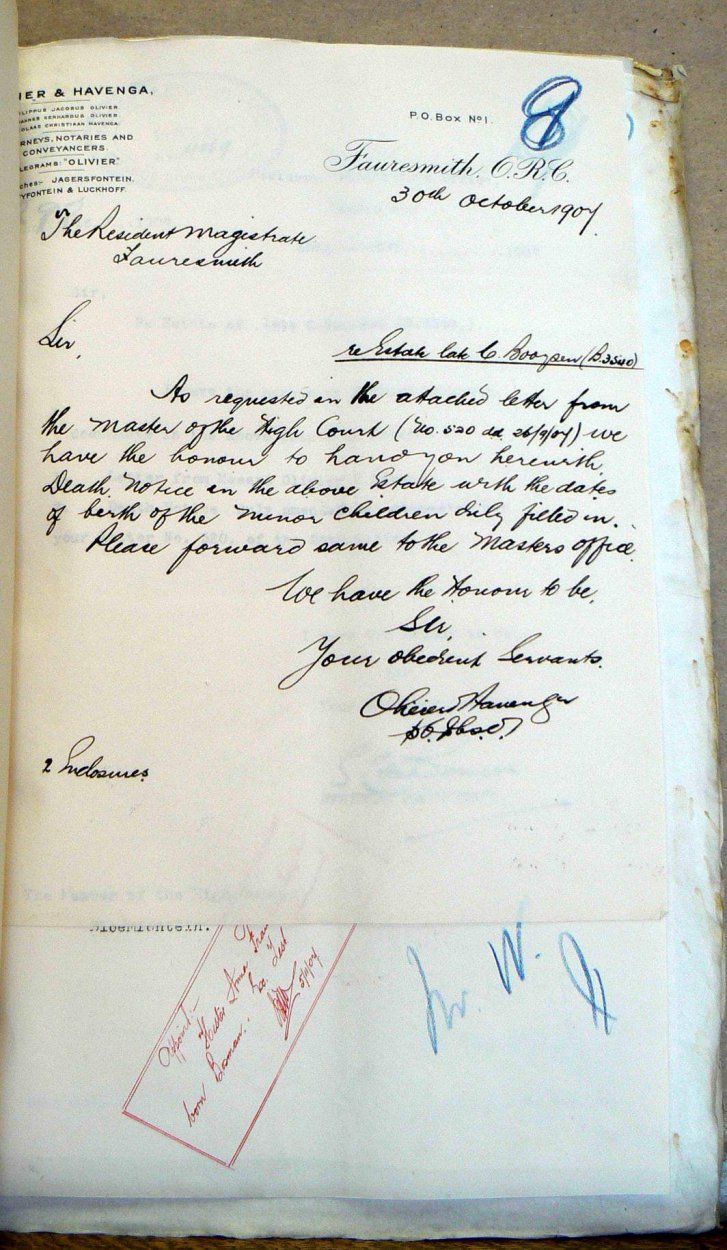 IER & HAVENGA,
LIPPUS JACOBUS OLIVIER
HANNES GERHARDUS OLIVIER
OLAAS CHRISTIAAN HAVENGA.
RNEYS, NOTARIES AND
CONVEYANCERS.
EGRAMS: "OLIVIER"
ches:- JAGERSFONTEIN,
YFONTEIN & LUCKHOFF.
P.O. Box No 1.
8
Fauresmith, O.R.C.
30th October 1907.
The Resident Magistrate
Fauresmith
Sir,
re Estate late C. Booysen (B3540)
As requested in the attached letter from
the Master of the High Court (No. 520 dd. 26/9/07) we
have the honour to hand you herewith,
Death Notice in the above Estate with the dates
of birth of the minor children duly filled in.
Please forward same to the Masters office.
We have the Honour to be,
Sir,
Your obedient Servants.
Olivier & Havenga
2 Enclosures
The Master of the High
Bloemfontein.
Appoint:-
Hester Anna
born Bosman: Ex. Test
5/9/07
W.